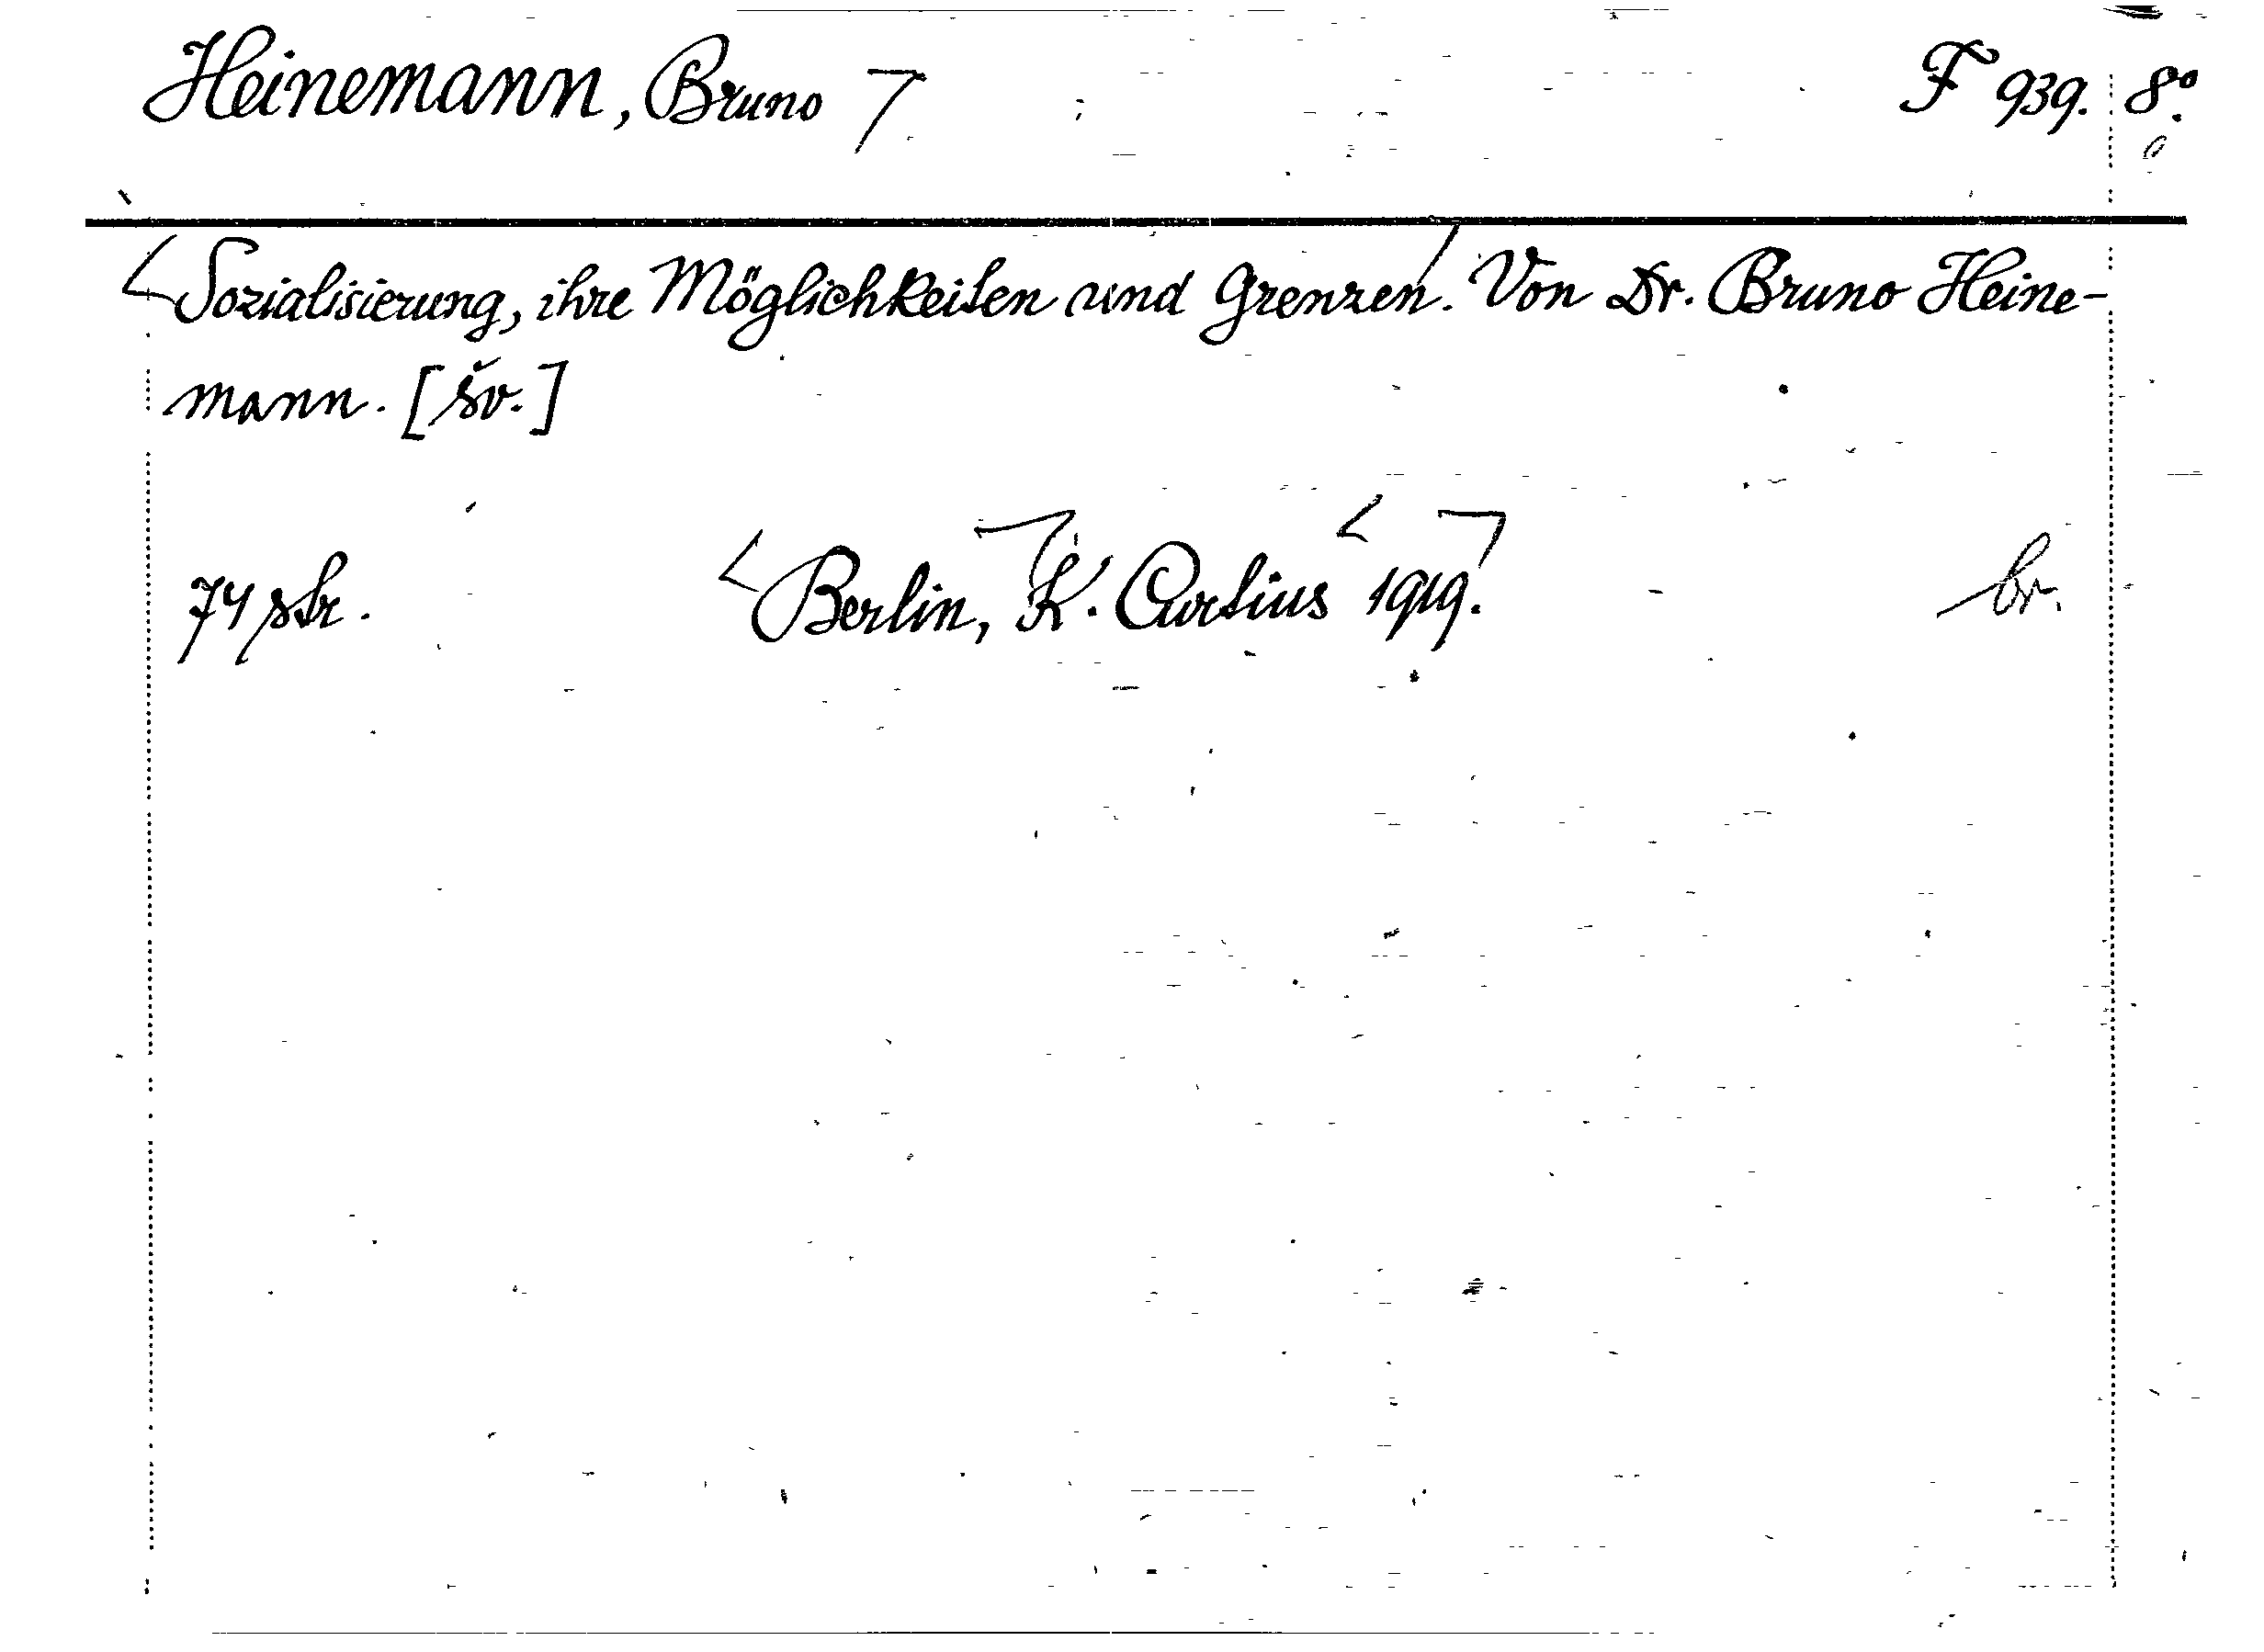 Heinemann, Bruno F 939. 8°.
Sozialisierung, ihre Möglichkeiten und Grenzen. Von Dr. Bruno Heine-
mann. [šv.]
74 str. Berlin, K. Curtius 1919. br.